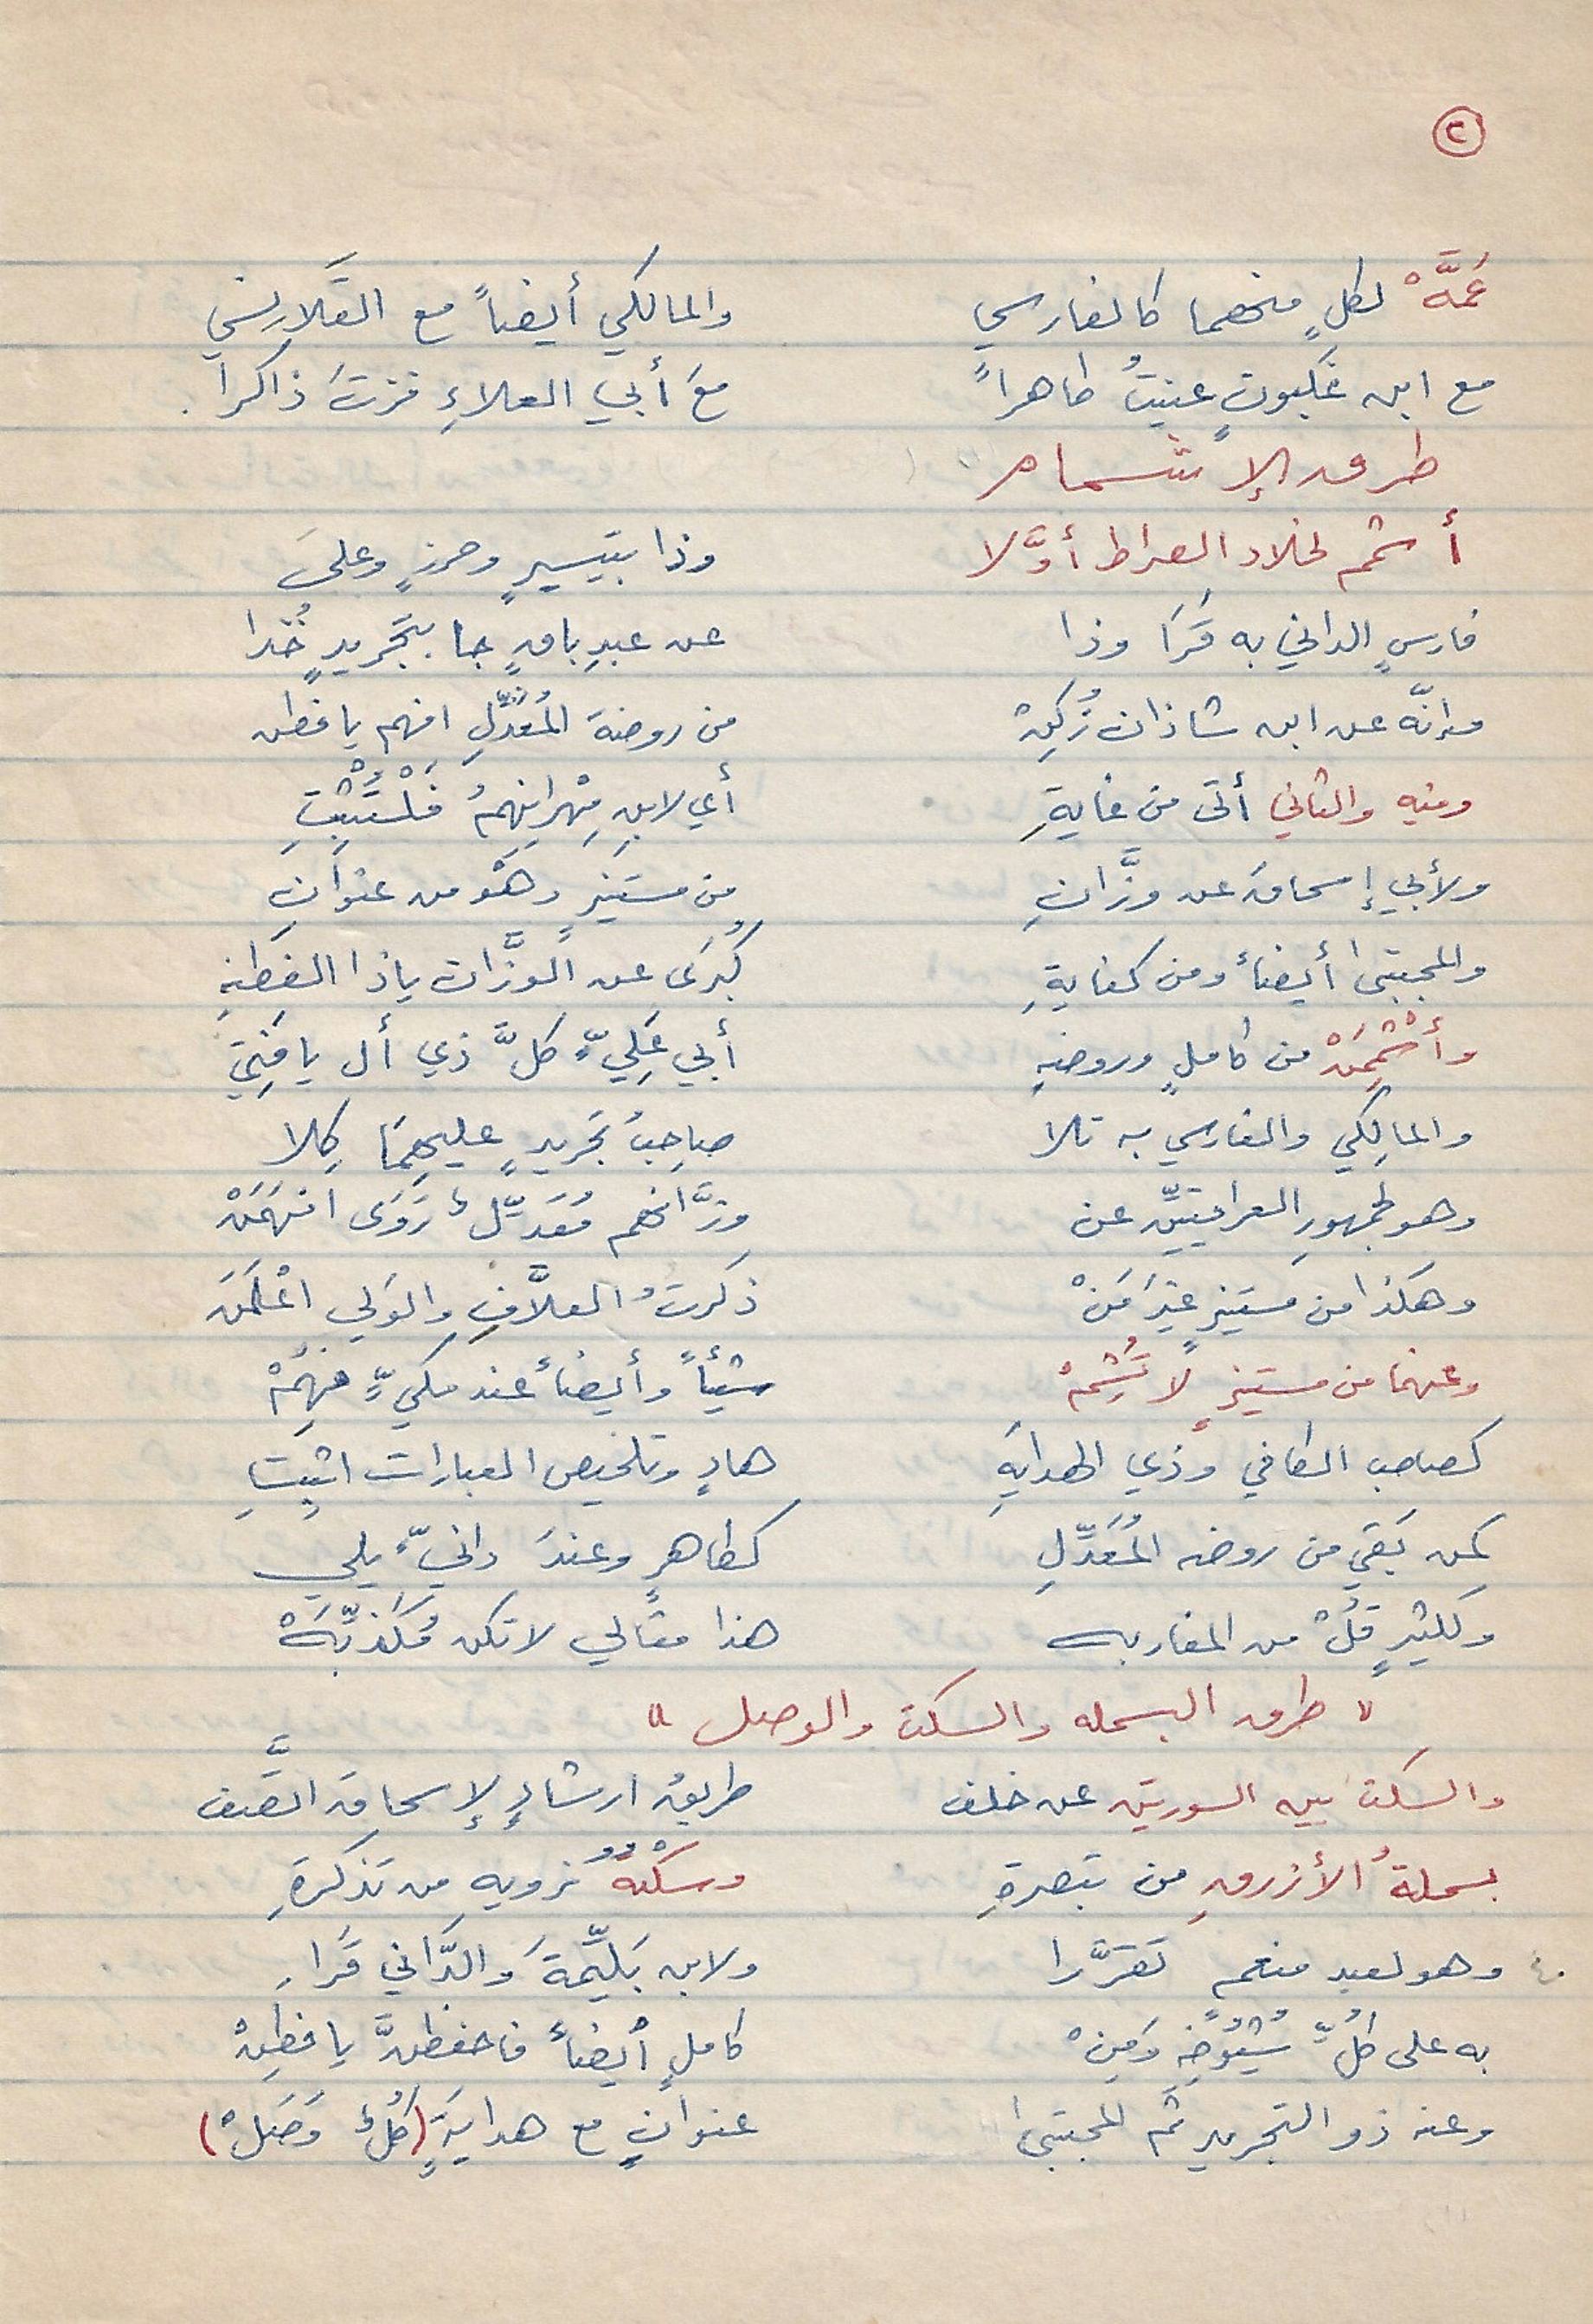 ٢
عَمَّهْ لكلٍ منهما كالفارسي والمالكي أيضاً مع القَلانِسي
مع ابن غَلبونٍ عنيتُ طاهراً معَ أبي العلاءِ فزتَ ذاكرا.
طرق الإشمام
أشمم لخلاد الصراط أوَّلا وذا بتيسيرٍ وحرزٍ وعلىَ
فارسٍ الداني به قَرَا وذا عن عبدِ باقٍ جا بتجريدٍ خُذا
وإنّه عن ابن شاذان زُكِنْ من روضة المُعَدِّلِ افهم يا فطن
ومنه والثاني أتى من غايةِ أي لابنِ مِهْرانِهِمُ فَلْتُثْبِتِ
ولأبي إسحاقَ عن وزَّانِ من مستنيرٍ وهْو من عنوانِ
والمجتبى أيضاً ومن كفايةِ كُبرَى عن الوزَّان ياذا الفطنةِ
وأَشْمِمَنْ من كاملٍ وروضةِ أبي عَلِيٍّ كلَّ ذي أل يا فتي
والمالِكي والفارسي به تلا صاحبُ تجريدٍ عليهِمَا كِلا
وهو لجمهورِ العراقيّين عن وزَّانهم مُعَدِّلٌ رَوَى افهَمَنْ
وهكذا من مستنيرٍ غيرَ مَنْ ذكرتُ العلاَّفِ والوَلي اعْلَمَن
وعنهما من مستنيرٍ لا تُشِمْ شيْئاً وأيضاً عند مكيٍّ فهِمْ
كصاحب الكافي وذي الهدايةِ هادٍ وتلخيص العبارات اثبِتِ
كمن بَقي من روضة المُعَدِّلِ كطاهرٍ وعندَ دانيٍّ يلي
ولكثيرٍ قُلْ من المغاربه هذا مقالي لا تكن مُكَذِّبَهْ
" طرق البسمله والسكت والوصل "
والسكت بين السورتين عن خلف طريقُ ارشادٍ لإسحاقَ اتَّصَف
بسملةُ الأزرقِ من تبصرةِ وسكْتُهُ نرويهِ من تذكرةِ
٤٠ وهو لعبد منعم تقرَّرا ولابن بَلِّيمَةَ والدَّاني قَرَا
به على كلِّ شُيُوخِهِ وَمِنْ كاملٍ أيضاً فاحفظنَّ يا فطِنْ
وعنه ذو التجريدِ ثم المجتبى عنوانٍ مع هدايةٍ (كُلٌ وَصَلْ)